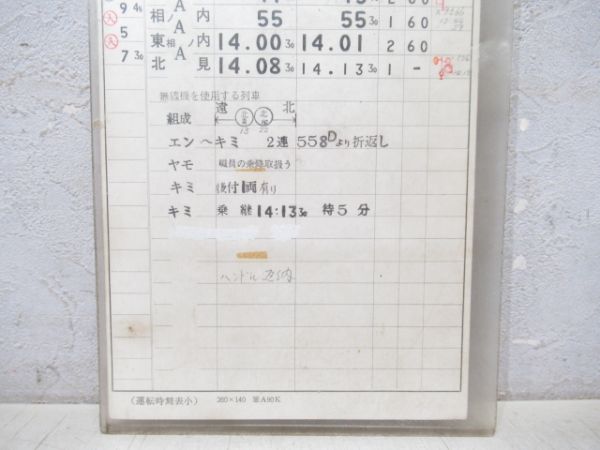 9 45
相ノ内 55 55 30 1 60
A
5 東相ノ内 14.00 30 14.01 2 60
A
7 30 北見 14.08 30 14.13 30 1 -
無線機を使用する列車
遠 北
組成
エン〜キミ 2連 558Dより折返し
ヤモ 職員の乗降取扱う
キミ 後付1両有り
キミ 乗継 14:13 30 待5分
ハンドル
(運転時刻表小) 260×140 A90K